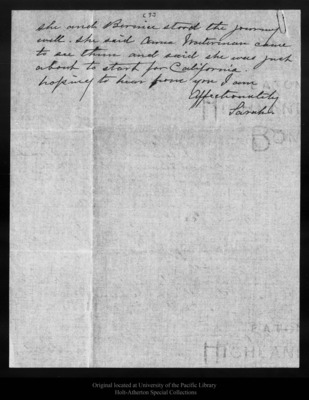 she and Bernice stood the journey
well. she said Anna Waterman came
to see them and said she was just
about to start for California.
hoping to hear from you I am
Affectionately
Sarah
Original located at University of the Pacific Library
Holt-Atherton Special Collections